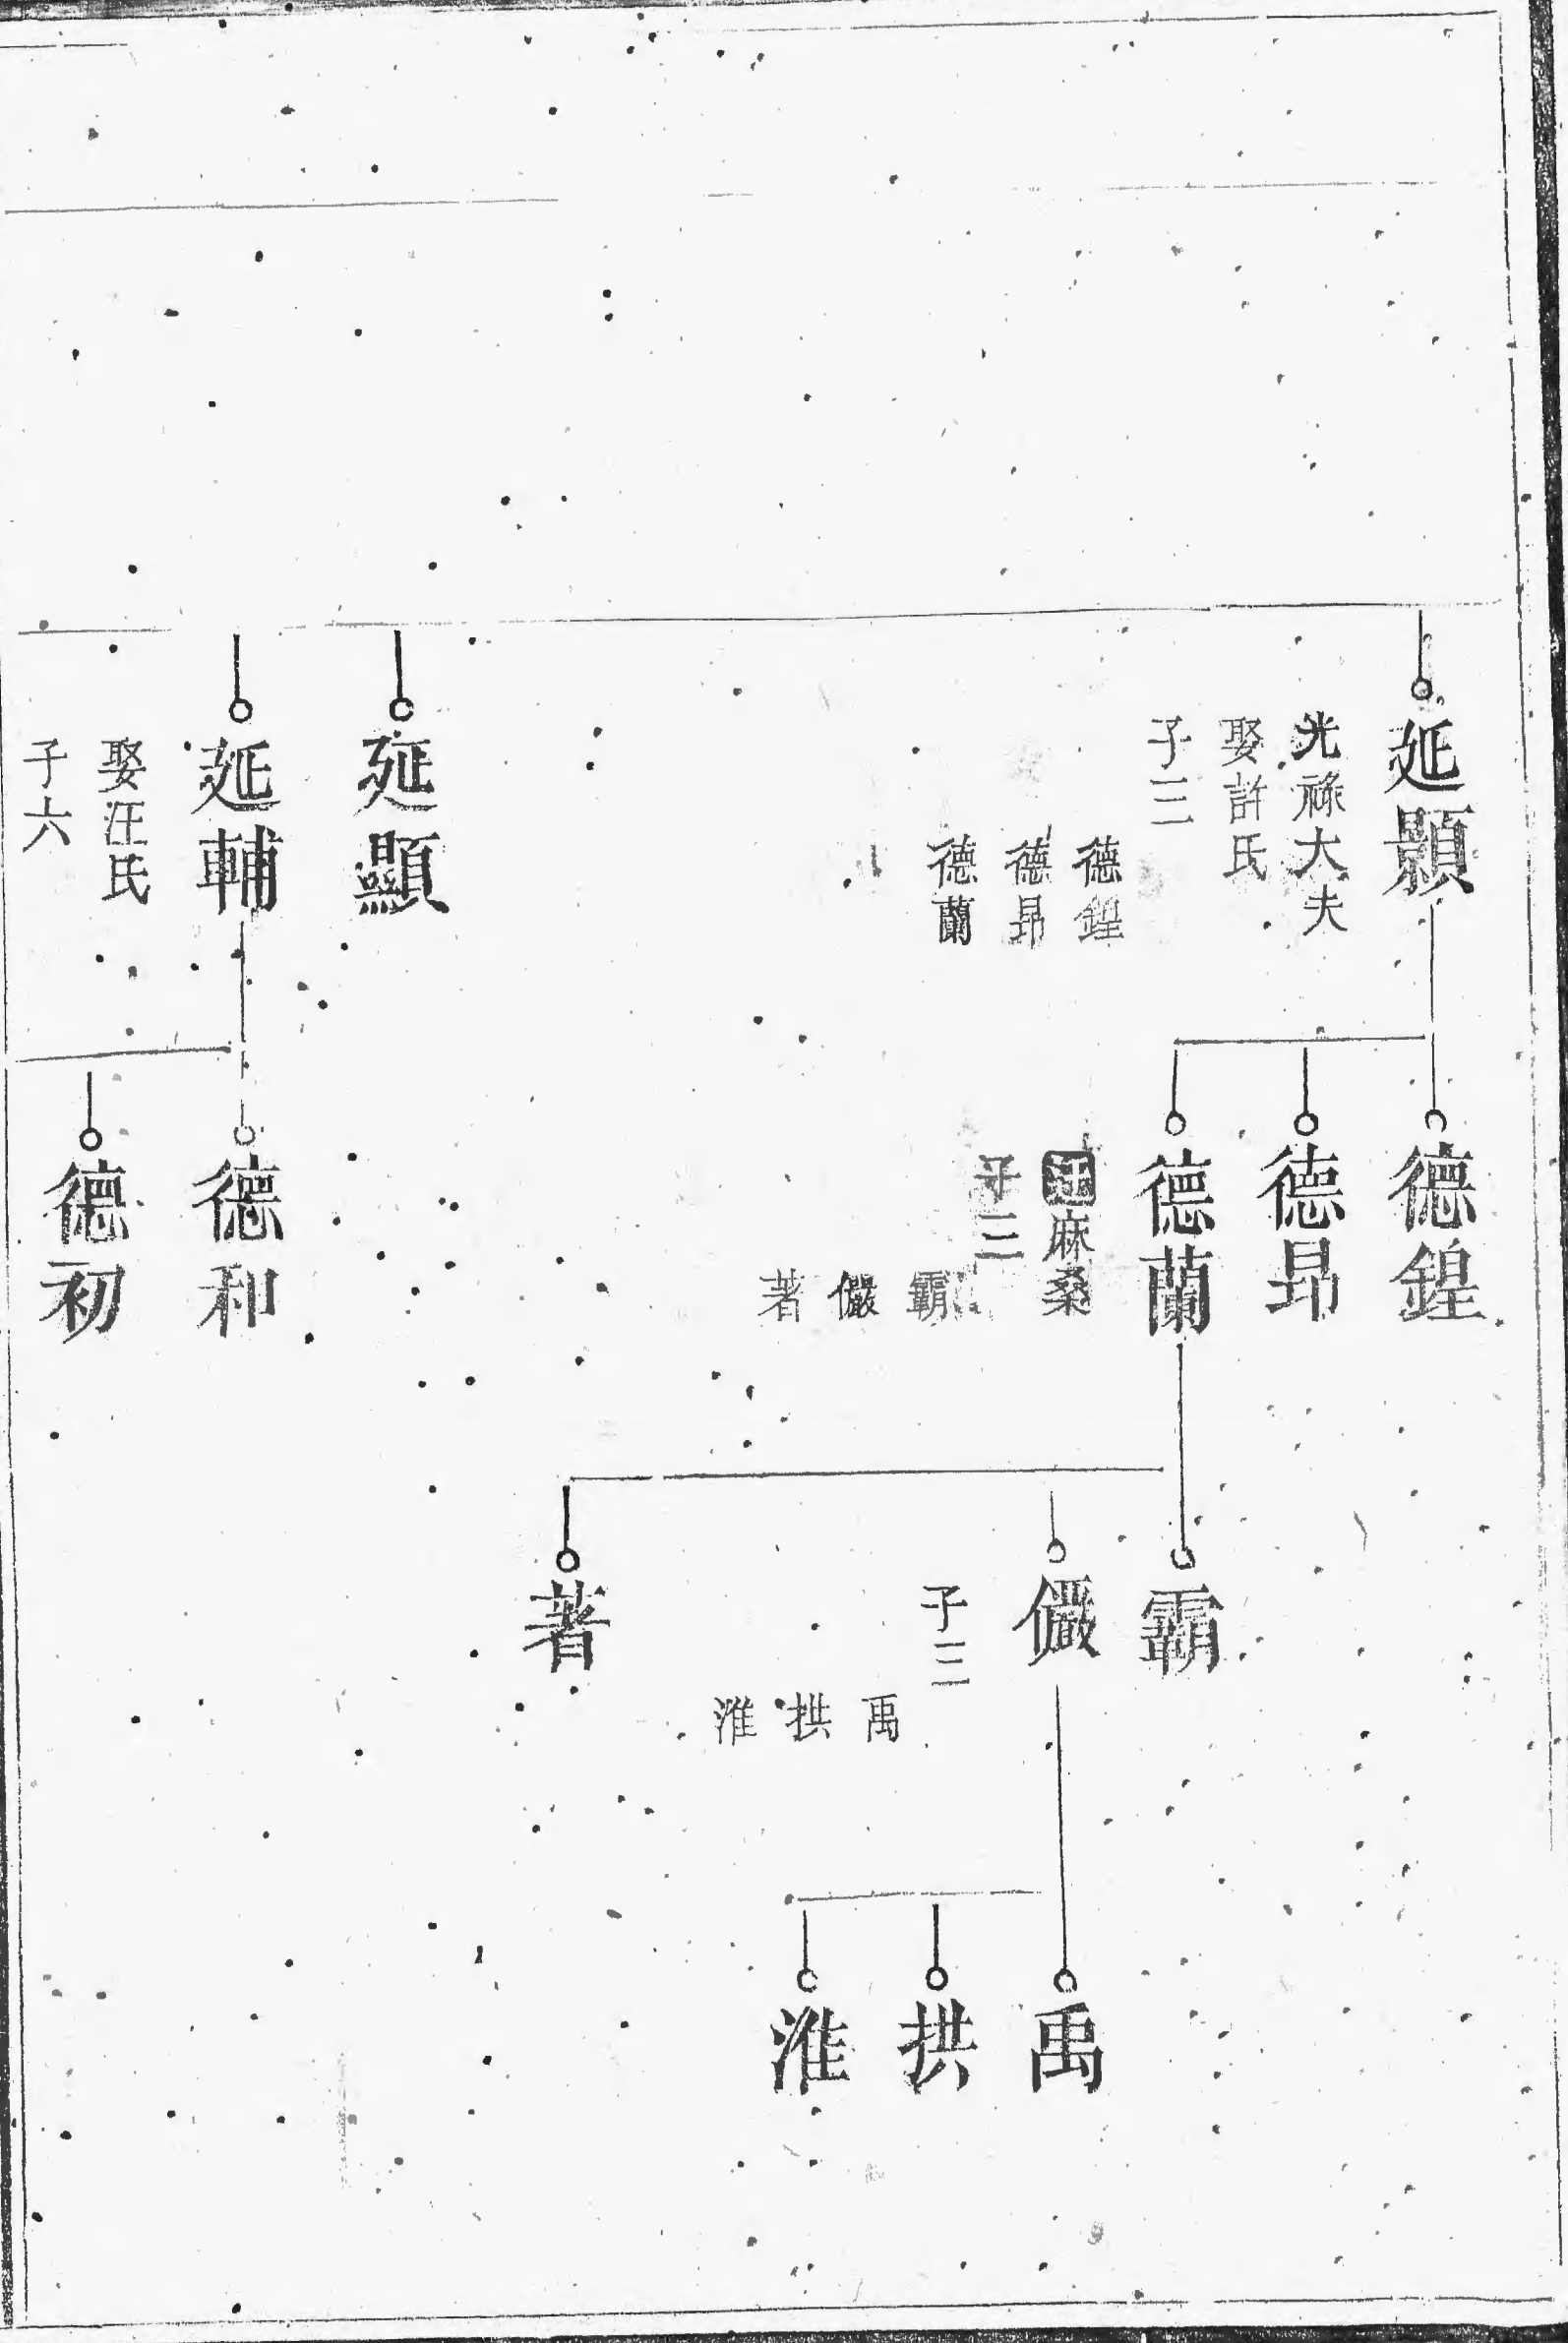 延顥
光祿大夫
娶許氏
子三
德鍠
德昂
德蘭
延顯
延輔
娶汪氏
子六
德鍠
德昂
德蘭
遷麻桑
子三
霸
儼
著
德和
德初
霸
儼
子三
禹
拱
淮
著
禹
拱
淮